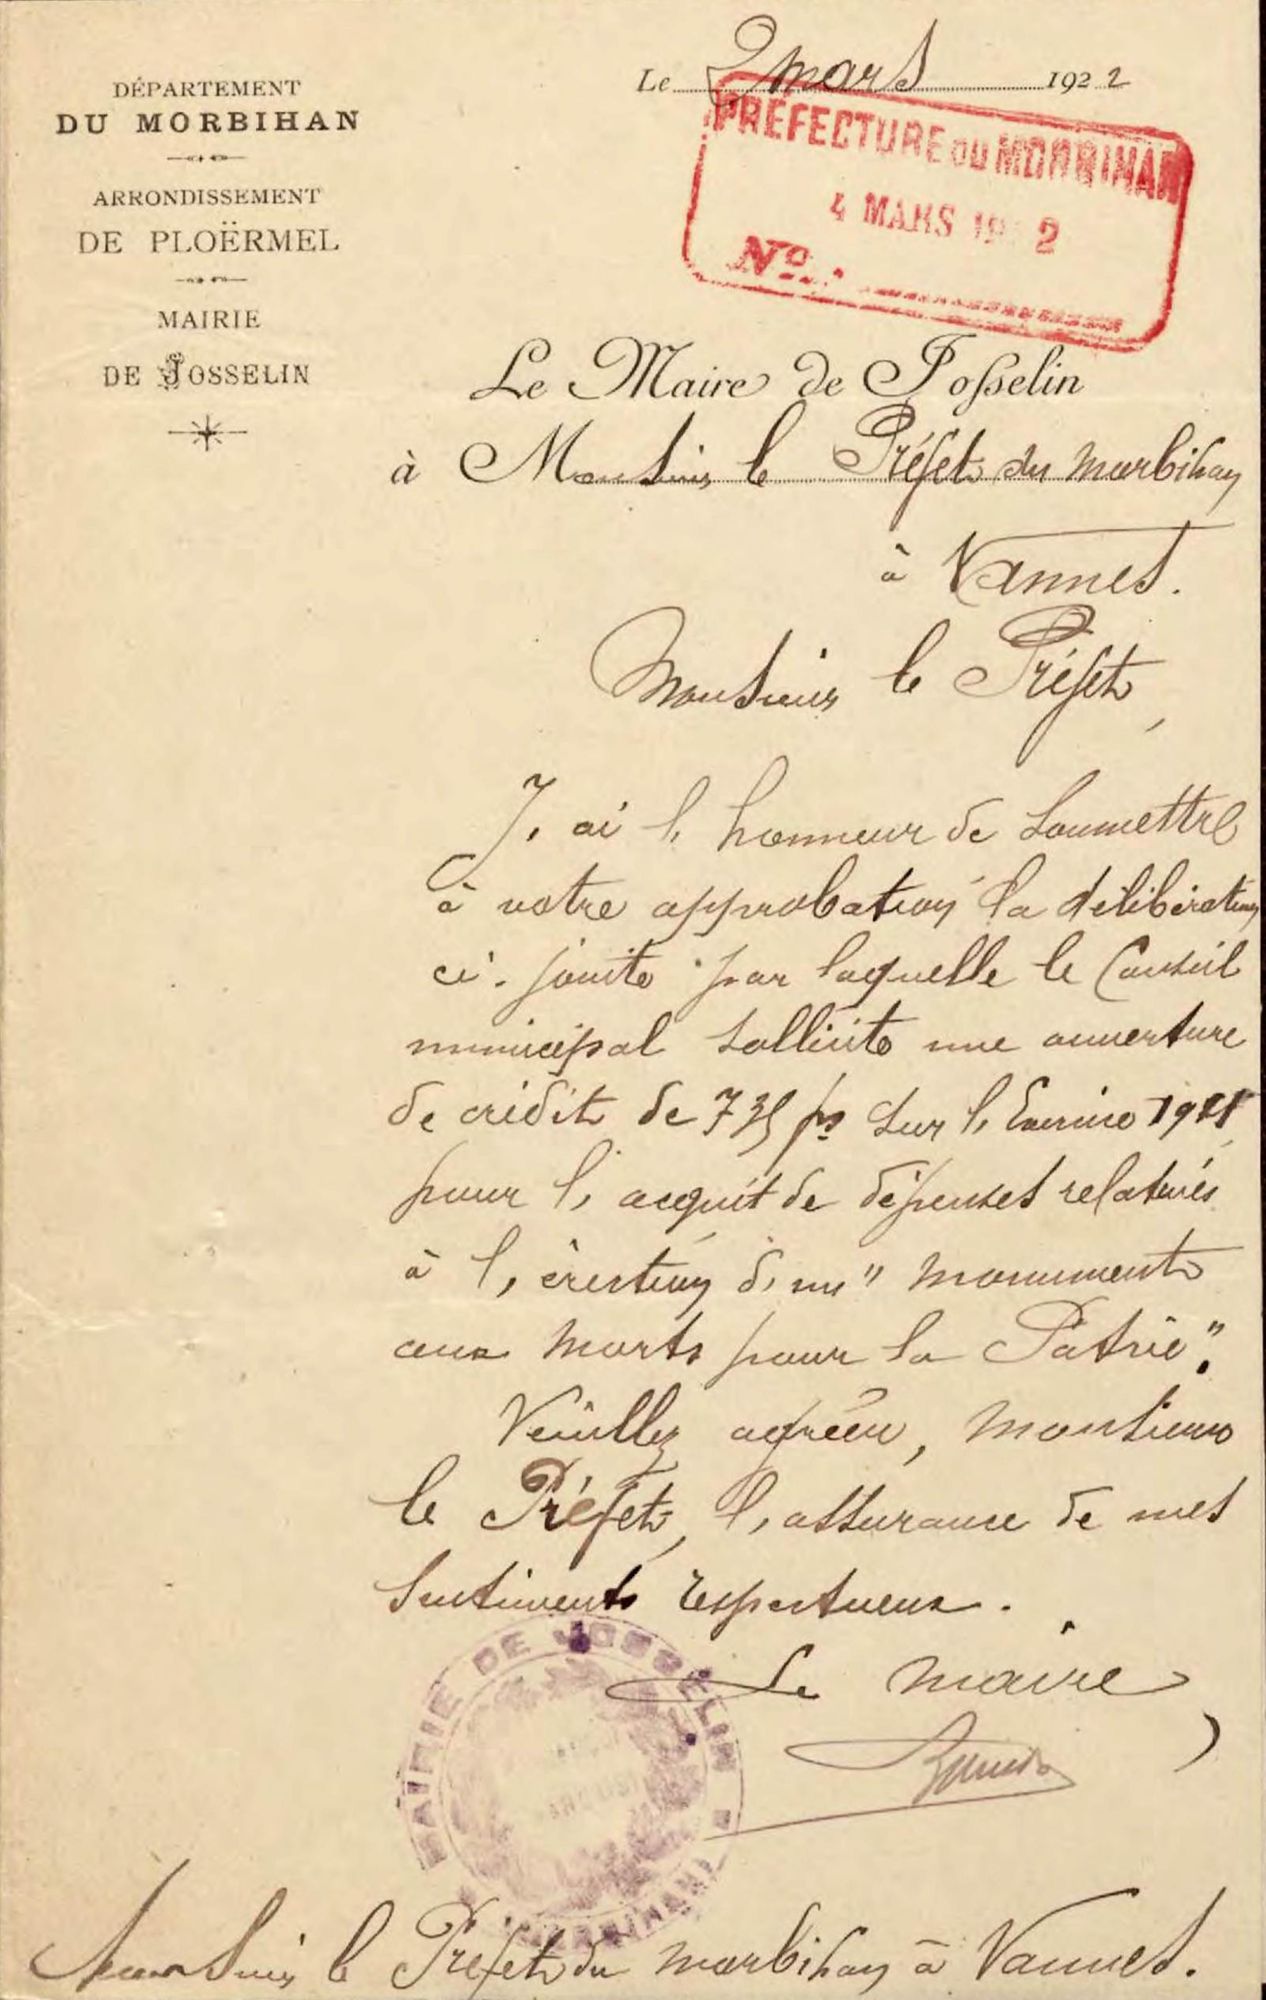 DÉPARTEMENT
DU MORBIHAN
ARRONDISSEMENT
DE PLOËRMEL
MAIRIE
DE JOSSELIN
Le 2 mars 1922
PRÉFECTURE DU MORBIHAN
4 MARS 19 2
No
Le Maire de Josselin
à Monsieur le Préfet du Morbihan
à Vannes.
Monsieur le Préfet,
J'ai l'honneur de soumettre
à votre approbation la délibération
ci-jointe par laquelle le Conseil
municipal sollicite une ouverture
de crédit de fs sur l'Exercice
pour l'acquit de dépenses relatives
à l'érection d'un "monument
aux morts pour la Patrie".
Veuillez agréer, Monsieur
le Préfet, l'assurance de mes
sentiments respectueux.
Le Maire,
MAIRIE DE JOSSELIN
MORBIHAN
Monsieur le Préfet du Morbihan à Vannes.